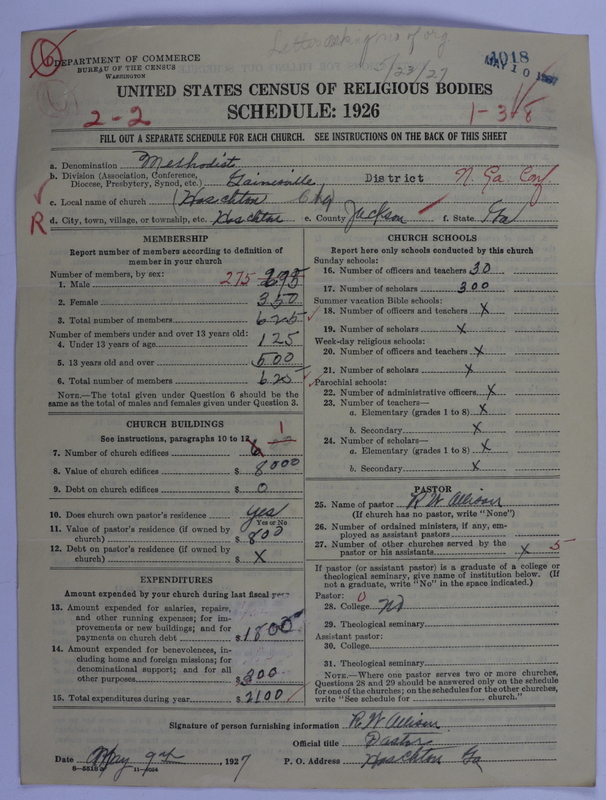 Letter asking no of org
5/23/27
1018
MAY 10 1927
DEPARTMENT OF COMMERCE
BUREAU OF THE CENSUS
WASHINGTON
UNITED STATES CENSUS OF RELIGIOUS BODIES
SCHEDULE: 1926
2-2
1-38
FILL OUT A SEPARATE SCHEDULE FOR EACH CHURCH. SEE INSTRUCTIONS ON THE BACK OF THIS SHEET
a. Denomination Methodist
b. Division (Association, Conference, Diocese, Presbytery, Synod, etc.) Gainesville District N. Ga. Conf.
c. Local name of church (Hoschton Chg)
R
d. City, town, village, or township, etc. Hoschton e. County Jackson f. State Ga
MEMBERSHIP
Report number of members according to definition of
member in your church
Number of members, by sex:
1. Male 275
2. Female 350
3. Total number of members 625
Number of members under and over 13 years old:
4. Under 13 years of age 125
5. 13 years old and over 500
6. Total number of members 625
NOTE.—The total given under Question 6 should be the
same as the total of males and females given under Question 3.
CHURCH BUILDINGS
See instructions, paragraphs 10 to 12
7. Number of church edifices 6 1
8. Value of church edifices $ 8000
9. Debt on church edifices $ 0
10. Does church own pastor's residence yes
Yes or No
11. Value of pastor's residence (if owned by
church) $ 800
12. Debt on pastor's residence (if owned by
church) $ X
EXPENDITURES
Amount expended by your church during last fiscal year
13. Amount expended for salaries, repairs,
and other running expenses; for im-
provements or new buildings; and for
payments on church debt $ 1800
14. Amount expended for benevolences, in-
cluding home and foreign missions; for
denominational support; and for all
other purposes $ 300
15. Total expenditures during year $ 2100
CHURCH SCHOOLS
Report here only schools conducted by this church
Sunday schools:
16. Number of officers and teachers 30
17. Number of scholars 300
Summer vacation Bible schools:
18. Number of officers and teachers X
19. Number of scholars X
Week-day religious schools:
20. Number of officers and teachers X
21. Number of scholars X
Parochial schools:
22. Number of administrative officers X
23. Number of teachers—
a. Elementary (grades 1 to 8) X
b. Secondary X
24. Number of scholars—
a. Elementary (grades 1 to 8) X
b. Secondary X
PASTOR
25. Name of pastor R W Allison
(If church has no pastor, write "None")
26. Number of ordained ministers, if any, em-
ployed as assistant pastors
27. Number of other churches served by the
pastor or his assistants X 5
If pastor (or assistant pastor) is a graduate of a college or
theological seminary, give name of institution below. (If
not a graduate, write "No" in the space indicated.)
Pastor: 0
28. College No
29. Theological seminary
Assistant pastor:
30. College
31. Theological seminary
NOTE.—Where one pastor serves two or more churches,
Questions 28 and 29 should be answered only on the schedule
for one of the churches; on the schedules for the other churches,
write "See schedule for church."
Signature of person furnishing information R.W Allison
Official title Pastor
Date May 9th, 1927 P. O. Address Hoschton Ga
6—5518 11—9034